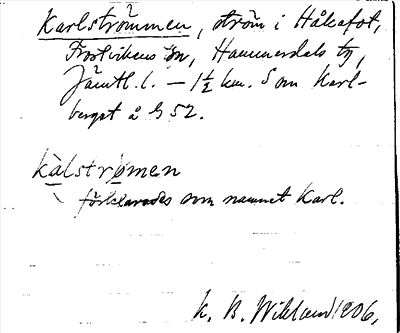 Karlströmmen, ström i Håkafot,
Frostvikens sn, Hammerdals tg,
Jämtl. l. — 1½ km. S om Karl-
berget å G 52.
kàlstrømen
förklarades som namnet Karl.
K. B. Wiklund 1906.